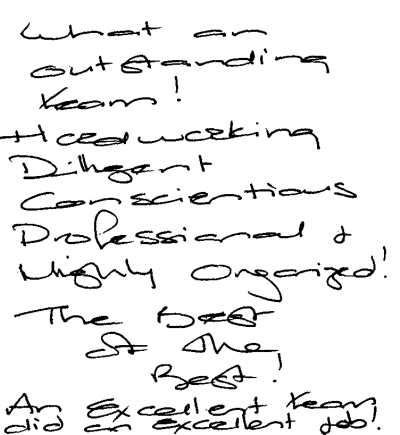 What an
outstanding
team!
Hardworking
Diligent
Conscientious
Professional &
Highly Organized!
The Best
of the
Best!
An Excellent team
did an excellent job!